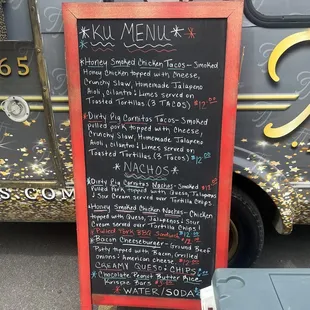 *KU MENU*
*Honey Smoked Chicken Tacos - Smoked
Honey Chicken topped with Cheese,
Crunchy Slaw, Homemade Jalapeno
Aioli, cilantro & Limes served on
Toasted Tortillas (3 TACOS) $12.00
*Dirty Pig Carnitas Tacos - Smoked
pulled pork topped with Cheese,
Crunchy Slaw, Homemade Jalapeno
Aioli, cilantro & Limes served on
Toasted Tortillas (3 Tacos) $12
*NACHOS*
*Dirty Pig Carnitas Nachos - Smoked
Pulled Pork topped with Queso, Jalapenos
& Sour Cream served over Tortilla Chips
*Honey Smoked Chicken Nachos - Chicken
topped with Queso, Jalapenos & Sour
Cream served over Tortilla Chips!
*Pulled Pork BBQ Sandwich
*Bacon Cheeseburger - Ground Beef
Patty topped with Bacon, Grilled
onions & American cheese
CREAMY QUESO & CHIPS
*Chocolate Peanut Butter Rice
Krispie Bars
*WATER/SODA
65
S.COM